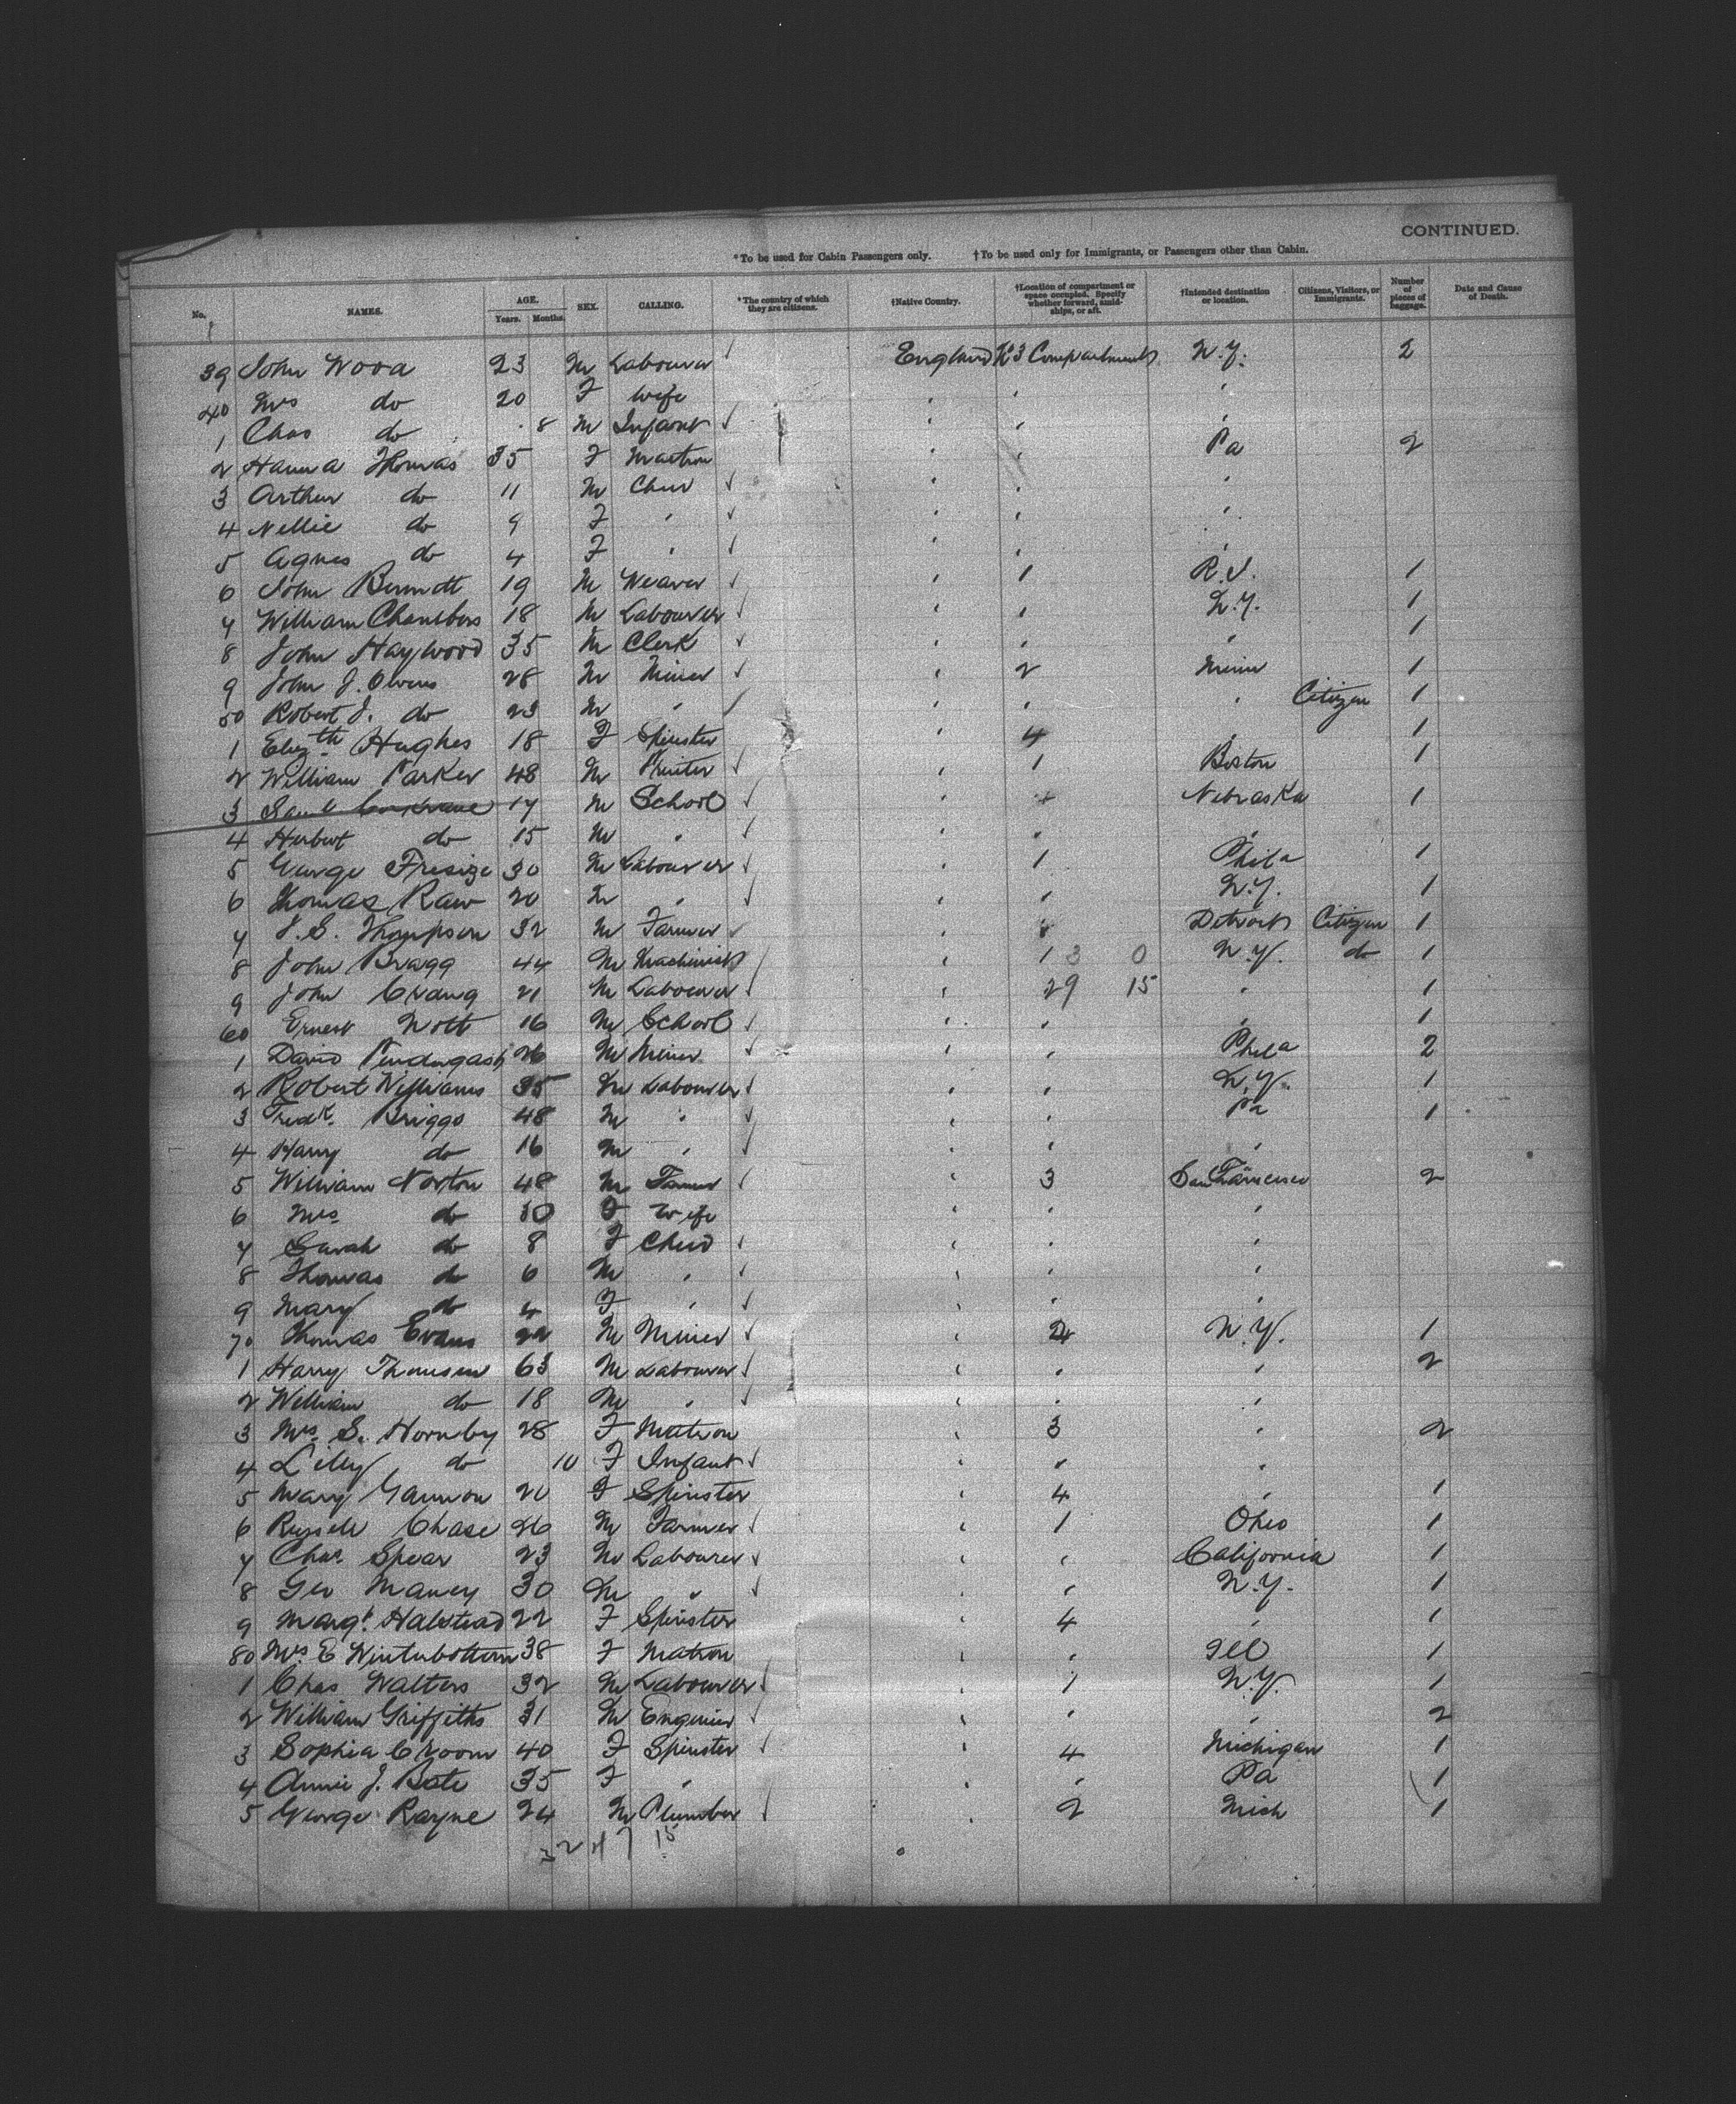 CONTINUED.
*To be used for Cabin Passengers only. †To be used only for Immigrants, or Passengers other than Cabin.
No. NAMES. AGE. Years. Months. SEX. CALLING. *The country of which they are citizens. †Native Country. †Location of compartment or space occupied. Specify whether forward, amidships, or aft. †Intended destination or location. Citizens, Visitors, or Immigrants. Number of pieces of baggage. Date and Cause of Death.
39 John Wood 23 M Labourer England No 3 Compartment N.Y. 2
40 Mrs do 20 F Wife " " "
1 Chas do 8 M Infant " " "
2 Hanna Thomas 35 F Matron " " Pa 2
3 Arthur do 11 M Child " " "
4 Nellie do 9 F " " " "
5 Agnes do 4 F " " " "
6 John Bennett 19 M Weaver " 1 R.I. 1
7 William Chambers 18 M Labourer " " N.Y. 1
8 John Haywood 35 M Clerk " " " 1
9 John J. Owens 28 M Miner " 2 Minn 1
50 Robert J. do 23 M " " " " Citizen 1
1 Elizth Hughes 18 F Spinster " 4 " 1
2 William Parker 48 M Printer " 1 Boston 1
3 Saml 17 M School " Nebraska 1
4 Herbert do 15 M " " " "
5 George 30 M Labourer " 1 Phila 1
6 Thomas Raw 20 M " " " N.Y. 1
7 J.S. Thompson 32 M Farmer " " Detroit Citizen 1
8 John Bragg 44 M Machinist " 1 3 0 N.Y. do 1
9 John 21 M Labourer " 29 15 " 1
60 Ernest Nott 16 M School " " " 1
1 David Pendergast 26 M Miner " " Phila 2
2 Robert Williams 35 M Labourer " " N.Y. 1
3 Fredk. Briggs 48 M " " " Pa 1
4 Harry do 16 M " " " "
5 William Norton 48 M Farmer " 3 San Francisco 2
6 Mrs do 30 F Wife " " "
7 Sarah do 8 F Child " " "
8 Thomas do 6 M " " " "
9 Mary do 4 F " " " "
70 Thomas Evans 22 M Miner " 2 N.Y. 1
1 Harry Thomson 63 M Labourer " " " 2
2 William do 18 M " " " "
3 Mrs. S. Hornby 28 F Matron " 3 " 2
4 Lilly do 10 F Infant " " "
5 Mary Gannon 20 F Spinster " 4 " 1
6 Russell Chase 26 M Farmer " 1 Ohio 1
7 Chas. Spear 23 M Labourer " " California 1
8 Geo Maney 30 M " " " N.Y. 1
9 Margt. Halstead 22 F Spinster " 4 " 1
80 Mrs. E Winterbottom 38 F Matron " " Ill 1
1 Chas Walters 32 M Labourer " 1 N.Y. 1
2 William Griffiths 31 M Engineer " " " 2
3 Sophia Croom 40 F Spinster " 4 Michigan 1
4 Annie J. Bate 35 F " " " Pa 1
5 George Rayne 24 M Plumber " 2 Mich 1